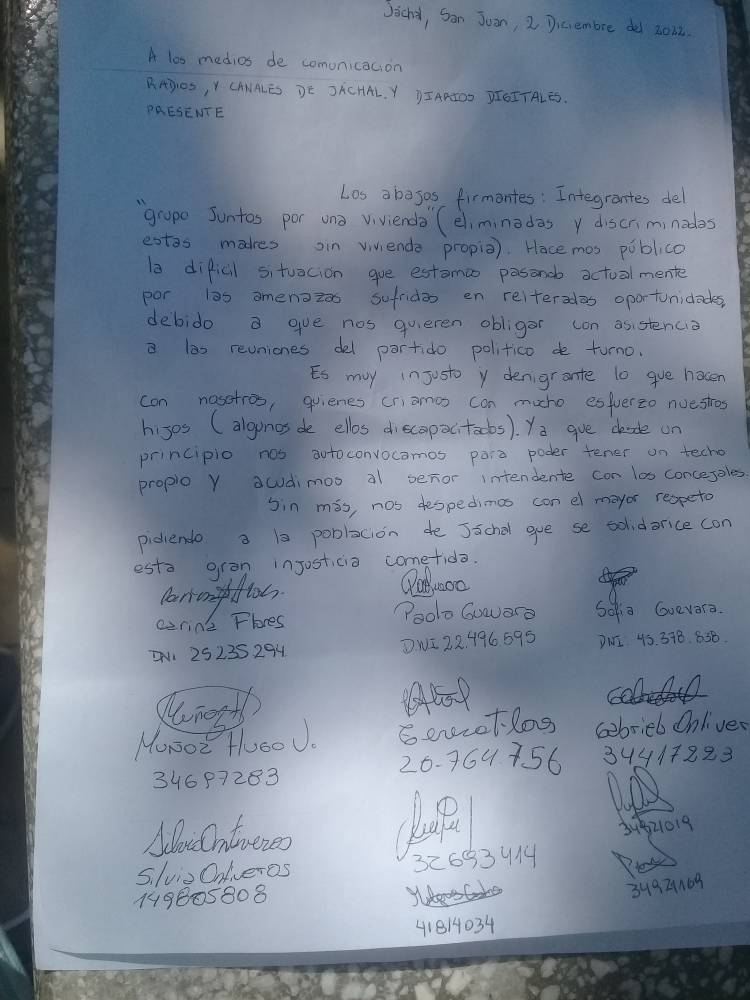 Jáchal, San Juan, 2 Diciembre del 2022.
A los medios de comunicación
RADIOS, Y CANALES DE JÁCHAL. Y DIARIOS DIGITALES.
PRESENTE
Los abajos firmantes: Integrantes del
"grupo Juntos por una vivienda" (eliminadas y discriminadas
estas madres sin vivienda propia). Hacemos público
la difícil situación que estamos pasando actualmente
por las amenazas sufridas en reiteradas oportunidades,
debido a que nos quieren obligar con asistencia
a las reuniones del partido político de turno.
Es muy injusto y denigrante lo que hacen
con nosotros, quienes criamos con mucho esfuerzo nuestros
hijos (algunos de ellos discapacitados). Ya que desde un
principio nos autoconvocamos para poder tener un techo
propio y acudimos al señor intendente con los concejales.
Sin más, nos despedimos con el mayor respeto
pidiendo a la población de Jáchal que se solidarice con
esta gran injusticia cometida.
Carina Flores
Paolo Guevara
Sofia Guevara.
DNI 25235294
DNI 22.496.595
DNI 45.378.838.
Muñoz H
MUÑOZ HUGO V.
34697283
20-764.756
34417223
Silvia Ontiveros
Silvia Ontiveros
32693414
34921019
41814034
34921169